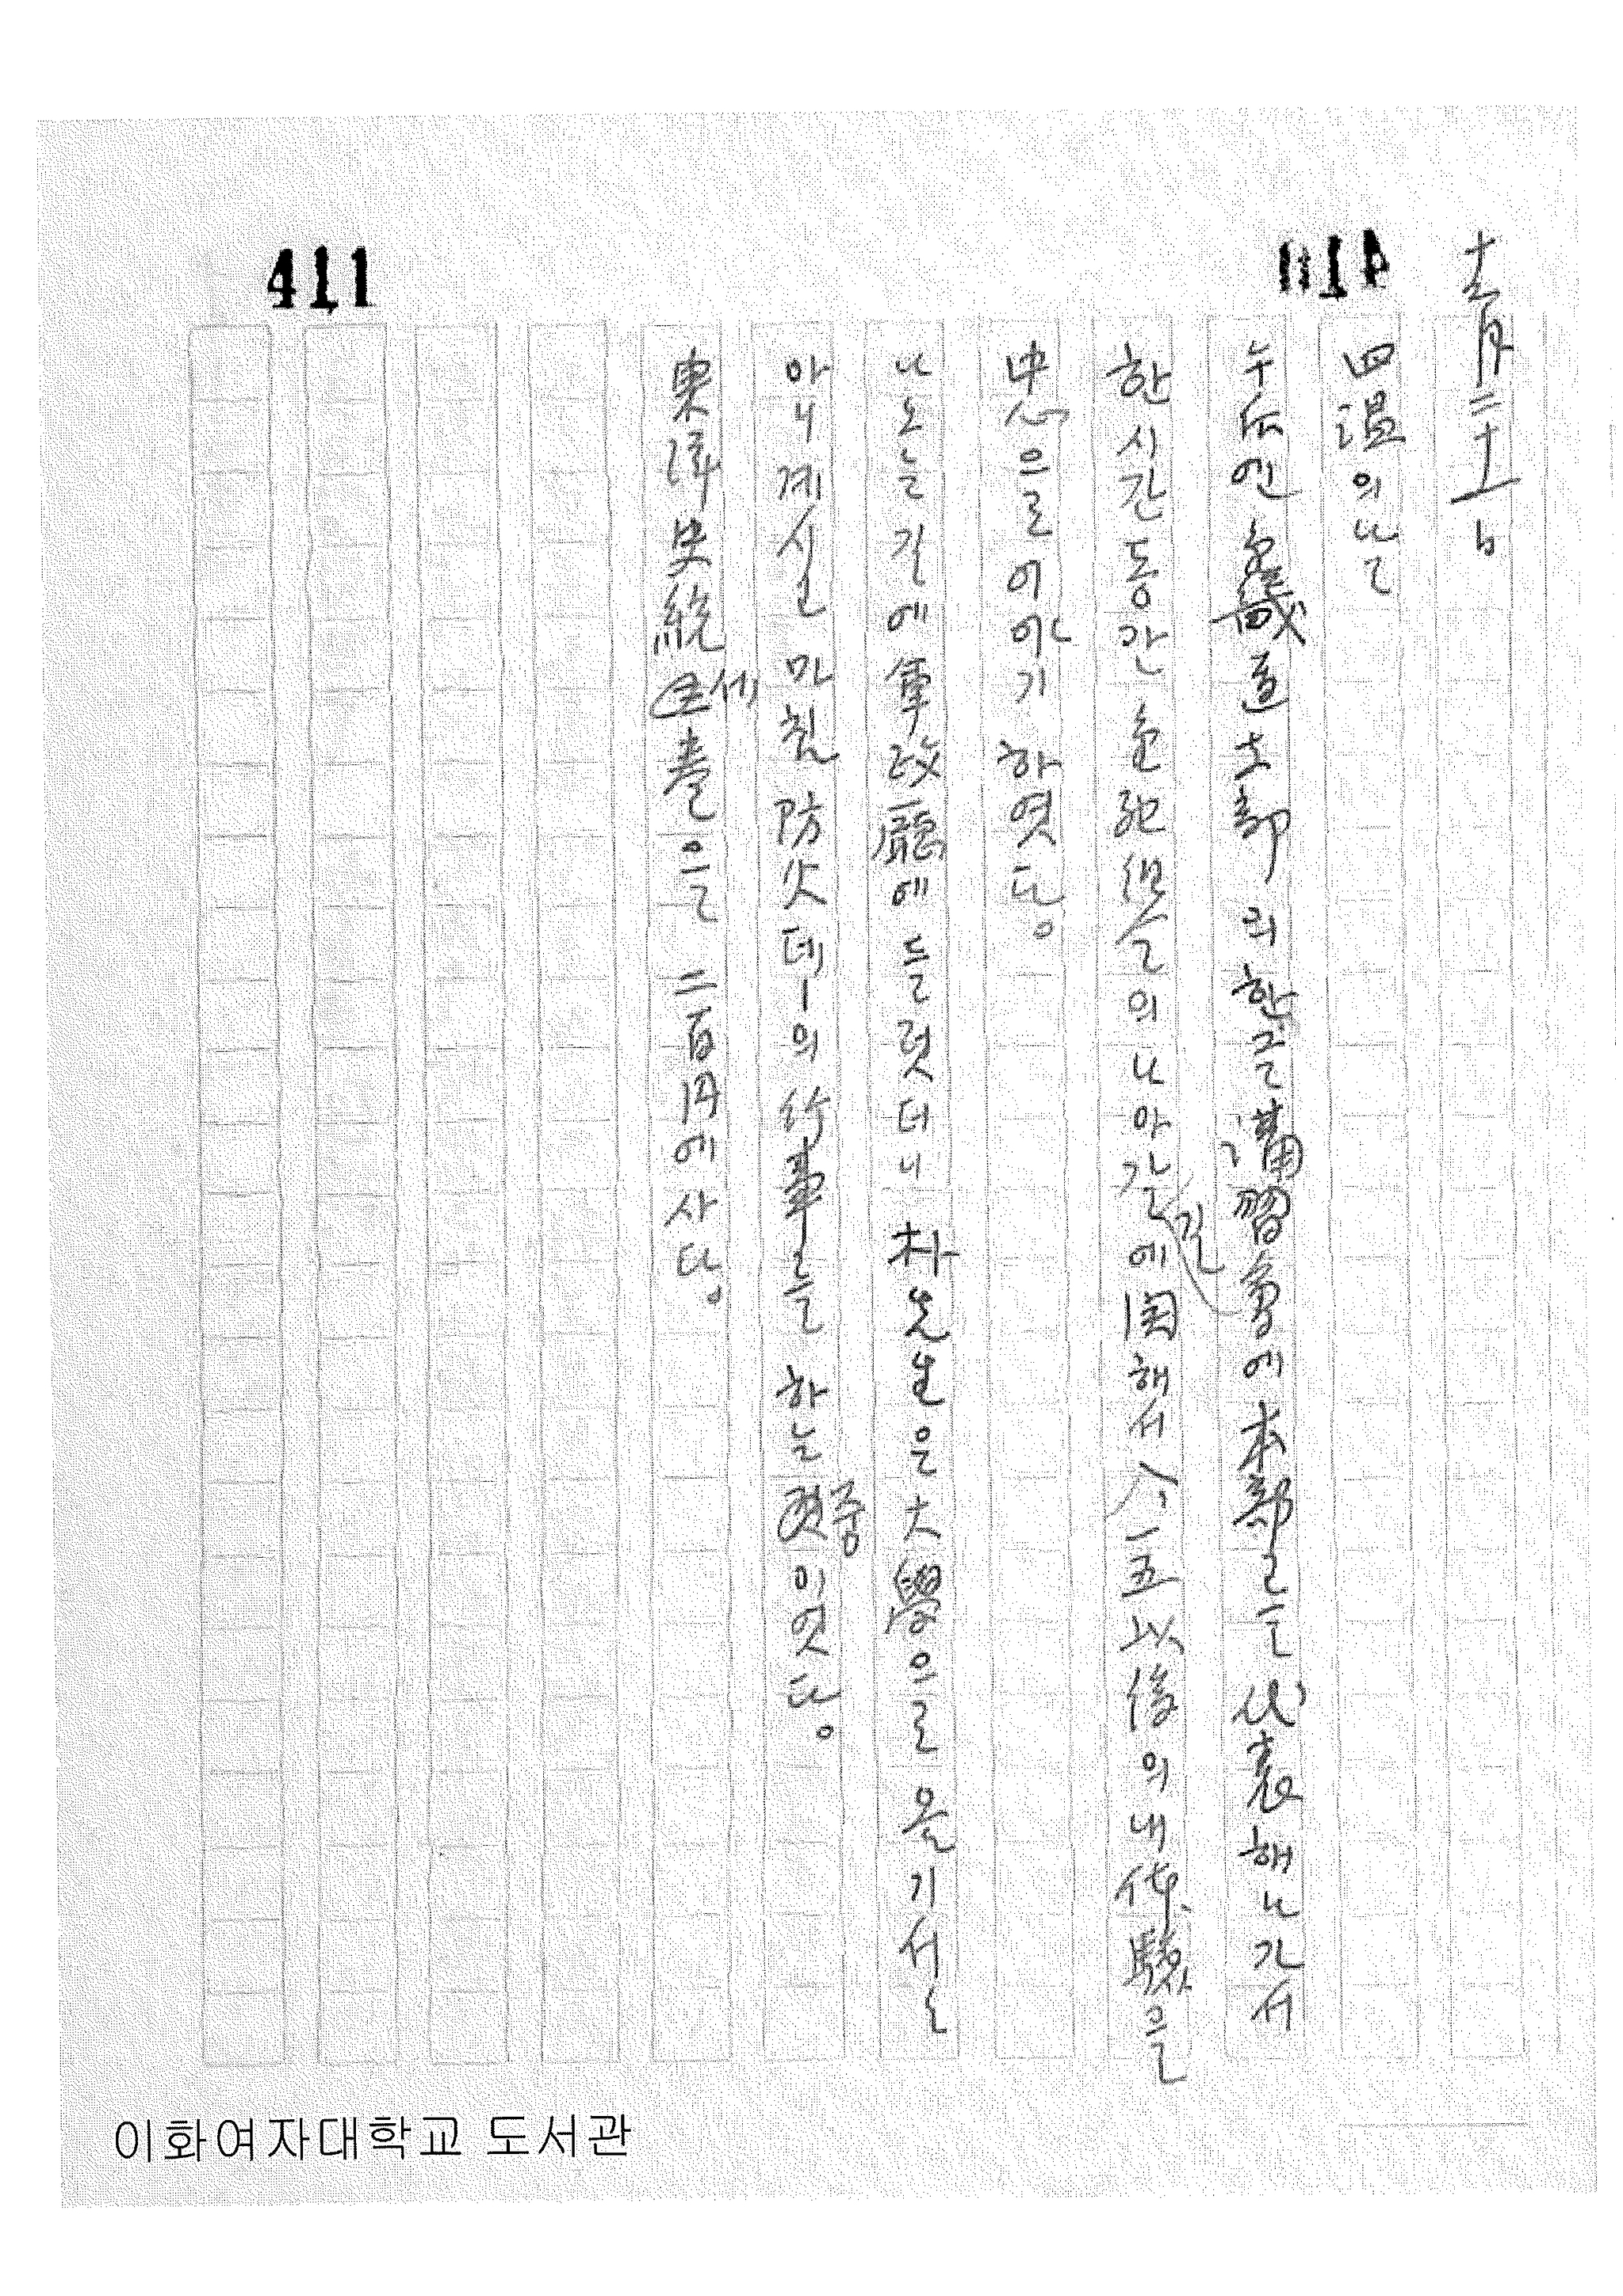 411
十二月二十一日
四温의 날
누구인 京畿道支部의 한글講習會에 本部를 代表해 나가서
한 시간 동안 金 들의 나아갈 길에 関해서 八·一五 以後의 내 体験을
中心으로 이야기 하엿다。
나오는 길에 軍政廳에 들럿더니 朴先生은 大學으로 올기서
아니 계시고 마침 防火데ー의 行事를 하는 중이엿다。
東洋史統 세 卷을 二百円에 사다。
이화여자대학교 도서관